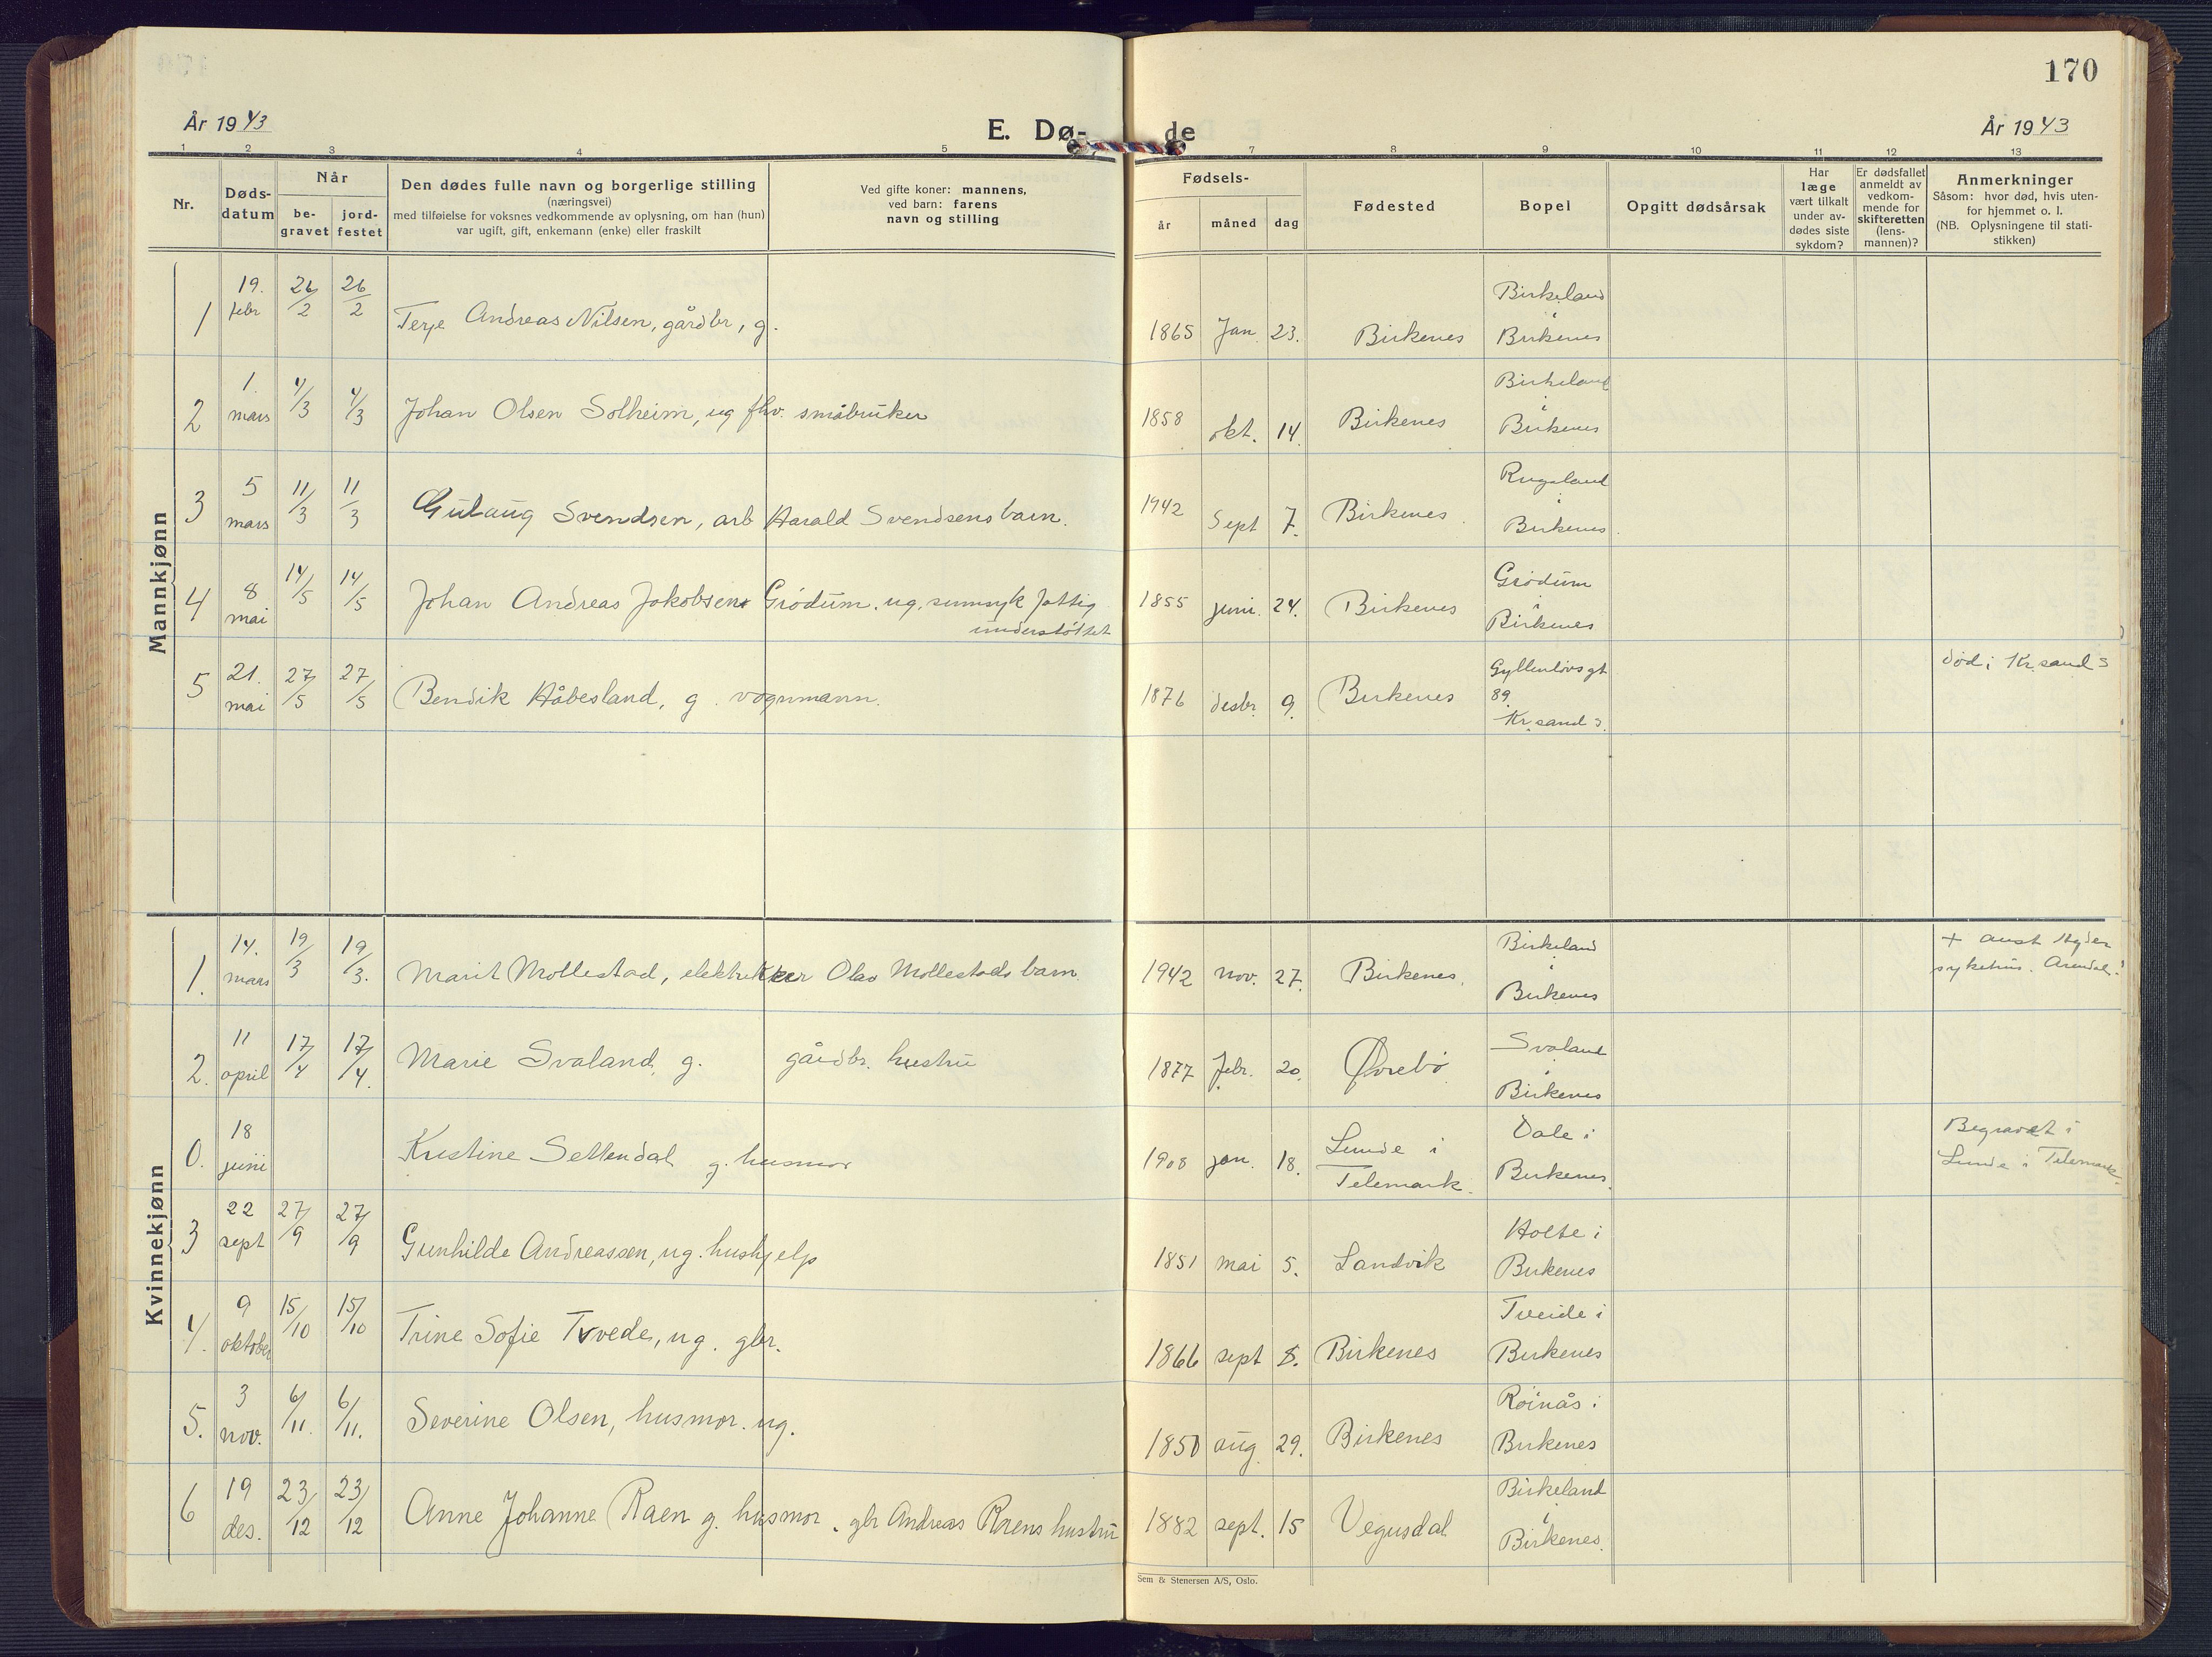 170
År 1943
E. Dø-
de
År 1943
1 2 3 4 5 7 8 9 10 11 12 13
Nr.
Døds-
datum
Når
be-
gravet
jord-
festet
Den dødes fulle navn og borgerlige stilling
(næringsvei)
med tilføielse for voksnes vedkommende av oplysning, om han (hun)
var ugift, gift, enkemann (enke) eller fraskilt
Ved gifte koner: mannens,
ved barn: farens
navn og stilling
Fødsels-
år måned dag
Fødested
Bopel
Opgitt dødsårsak
Har
læge
vært tilkalt
under av-
dødes siste
sykdom?
Er dødsfallet
anmeldt av
vedkom-
mende for
skifteretten
(lens-
mannen)?
Anmerkninger
Såsom: hvor død, hvis uten-
for hjemmet o. l.
(NB. Oplysningene til stati-
stikken)
Mannkjønn
1 19. febr 26/2 26/2 Terje Andreas Nilsen, gårdbr, g. 1865 Jan. 23. Birkenes Birkeland i Birkenes
2 1. mars 4/3 4/3 Johan Olsen Solheim, ug fhv. småbruker 1858 okt. 14. Birkenes Birkeland i Birkenes
3 5 mars 11/3 11/3 Gulaug Svendsen, arb Harald Svendsens barn. 1942 Sept 7. Birkenes. Rugsland i Birkenes.
4 8 mai 14/5 14/5 Johan Andreas Jakobsen Grödum. ug. sinnsyk fattig
understöttet 1855 juni. 24. Birkenes Grödum i Birkenes
5 21. mai 27/5 27/5 Bendik Håbesland, g. vognmann. 1876 desbr. 9. Birkenes Gyllenlövsgt 89. Kr.sand S. död i Kr.sand S
Kvinnekjønn
1. 14. mars 19/3 19/3. Marit Mollestad, elektrikker Olav Mollestads barn. 1942 nov. 27. Birkenes. Birkeland i Birkenes + Aust Agder
sykehus. Arendal.
2. 11 april 17/4 17/4. Marie Svaland, g. gårdbr. hustru 1877 febr. 20. Øvrebö Svaland i Birkenes
0. 18 juni Kristine Settendal g. husmor 1908 jan. 18. Lunde i
Telemark. Dale i Birkenes. Begravet i
Lunde i Telemark.
3 22 sept 27/9 27/9 Gunhilde Andreassen, ug. hushjelp 1851 mai 5. Landvik Holte i Birkenes
4. 9 oktober 15/10 15/10 Trine Sofie Tvede, ug. gbr. 1866 sept 8. Birkenes Tveide i Birkenes
5. 3 nov. 6/11. 6/11. Severine Olsen, husmor. ug. 1850 aug. 29. Birkenes Röinås i Birkenes
6 19 des. 23/12 23/12 Anne Johanne Raen g. husmor. gbr Andreas Raens hustru 1882 sept. 15 Vegusdal Birkeland i Birkenes.
Sem & Stenersen A/S, Oslo.